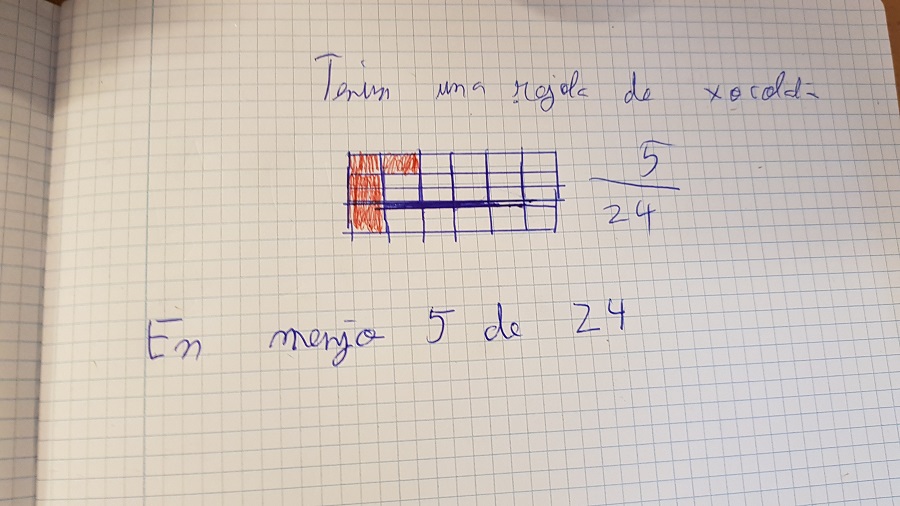 Tenim una rajola de xocolata
5
24
En menjo 5 de 24